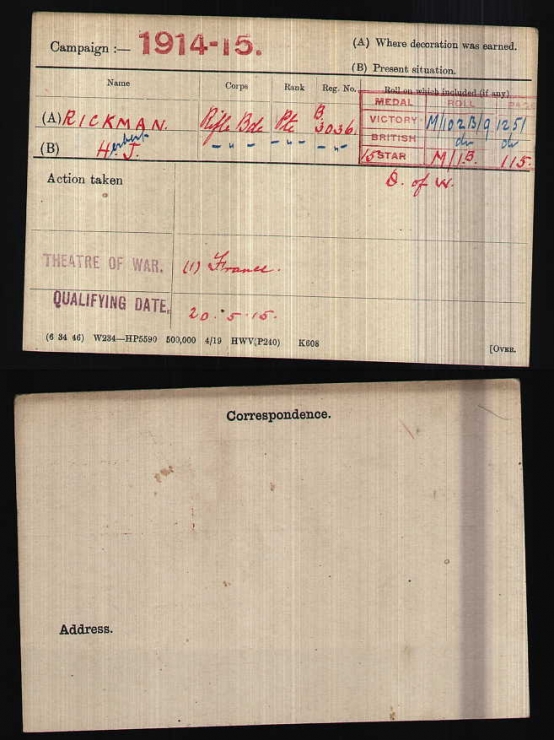 Campaign :— 1914-15.
(A) Where decoration was earned.
(B) Present situation.
Name Corps Rank Reg. No. Roll on which included (if any)
MEDAL ROLL PAGE
(A) RICKMAN. Rifle Bde Pte B. 3036. VICTORY M/102B/9 1251
(B) Herbert J. -"- -"- -"- -"- BRITISH do do
15 STAR M/1B. 115.
Action taken D. of W.
THEATRE OF WAR. (1) France.
QUALIFYING DATE. 20.5.15.
(6 34 46) W234—HP5590 500,000 4/19 HWV(P240) K608
[OVER.
Correspondence.
Address.